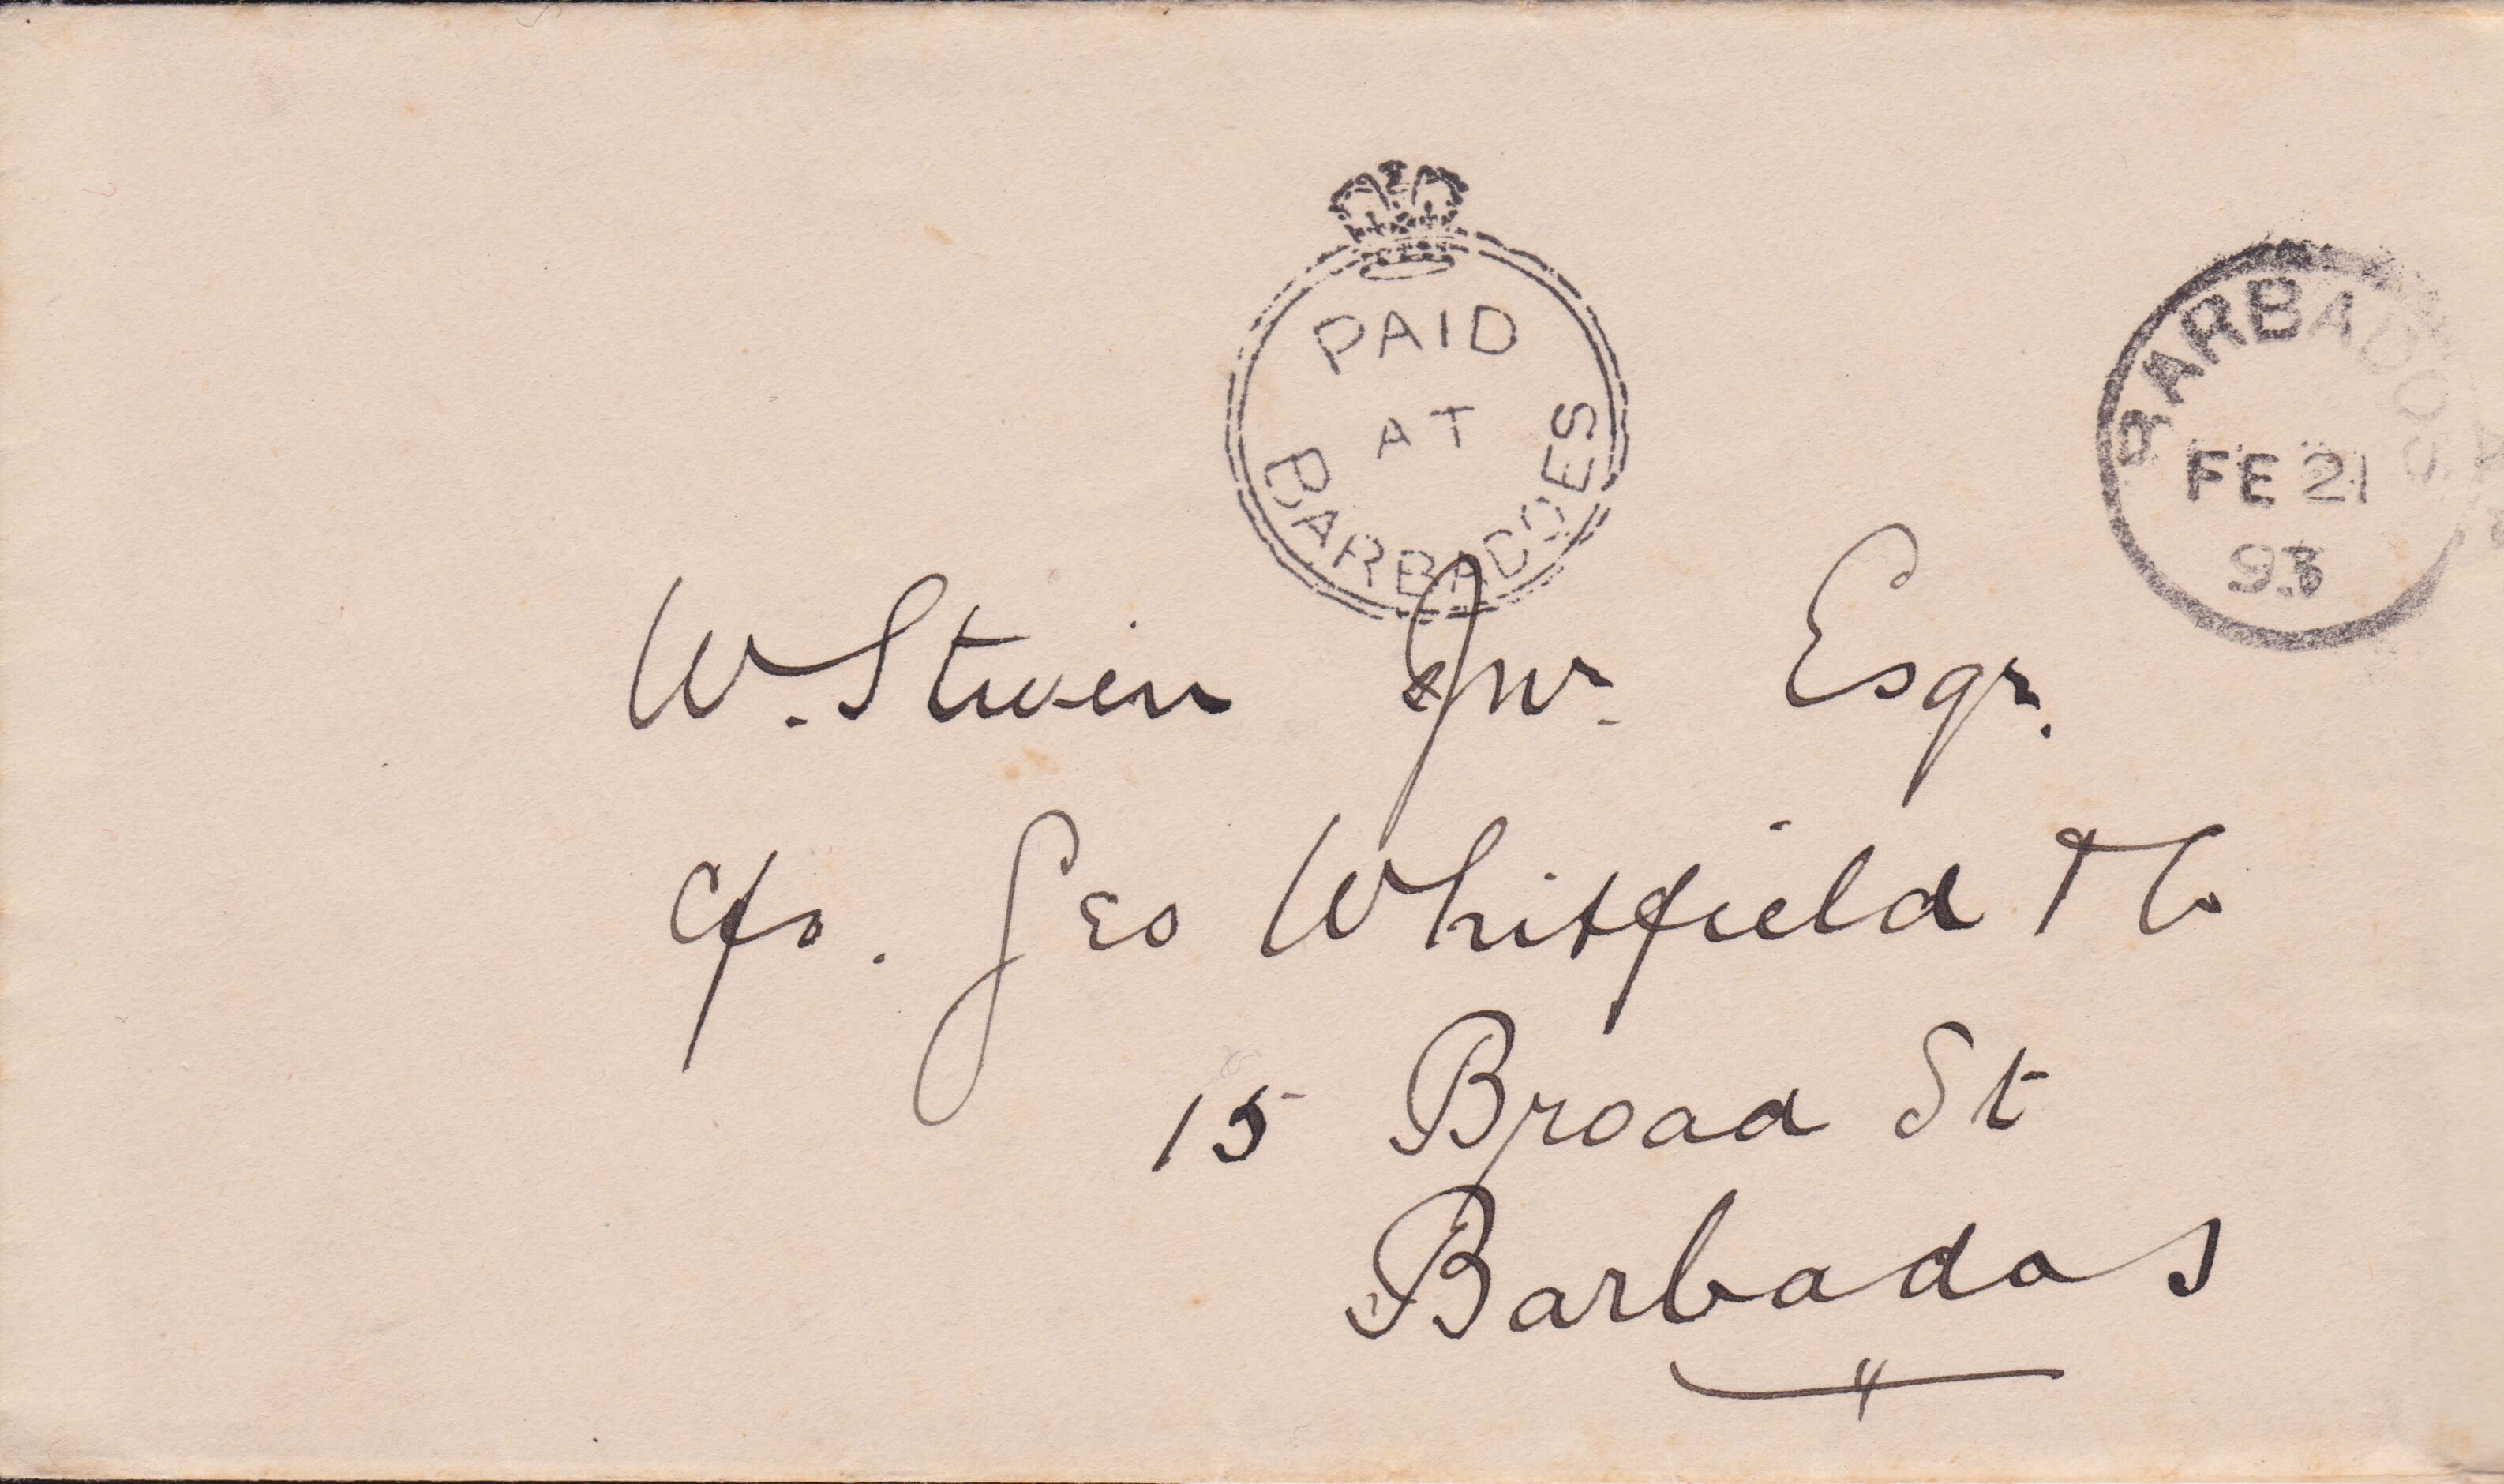 PAID
AT
BARBADOES
BARBADOS
FE 21
93
W. Stwein Jnr. Esqr.
c/o. Geo Whitfield & Co
15 Broad St
Barbados